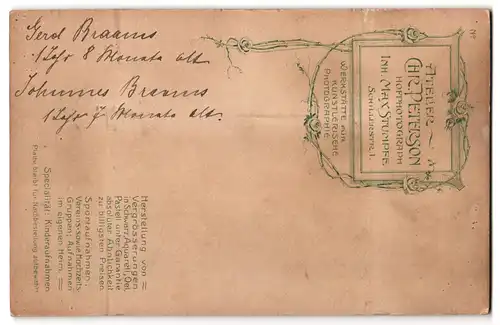 Gerd Braams
1 Jahr 8 Monate alt
Johannes Braams
1 Jahr 7 Monate alt.
Atelier
Carl Peterson
Hofphotograph
Inh. Max Stumpfe
Schillerstr. 1.
Werkstätte für
künstlerische
Photographie
Herstellung von
Vergrösserungen
in Schwarz, Aquarell, Oel
Pastell unter Garantie
absoluter Ähnlichkeit
zu billigsten Preisen.
Sportaufnahmen,
Vereins- sowie Hochzeits-
Gruppen, Aufnahmen
im eigenen Heim.
Specialität: Kinderaufnahmen
Platte bleibt für Nachbestellung aufbewahrt